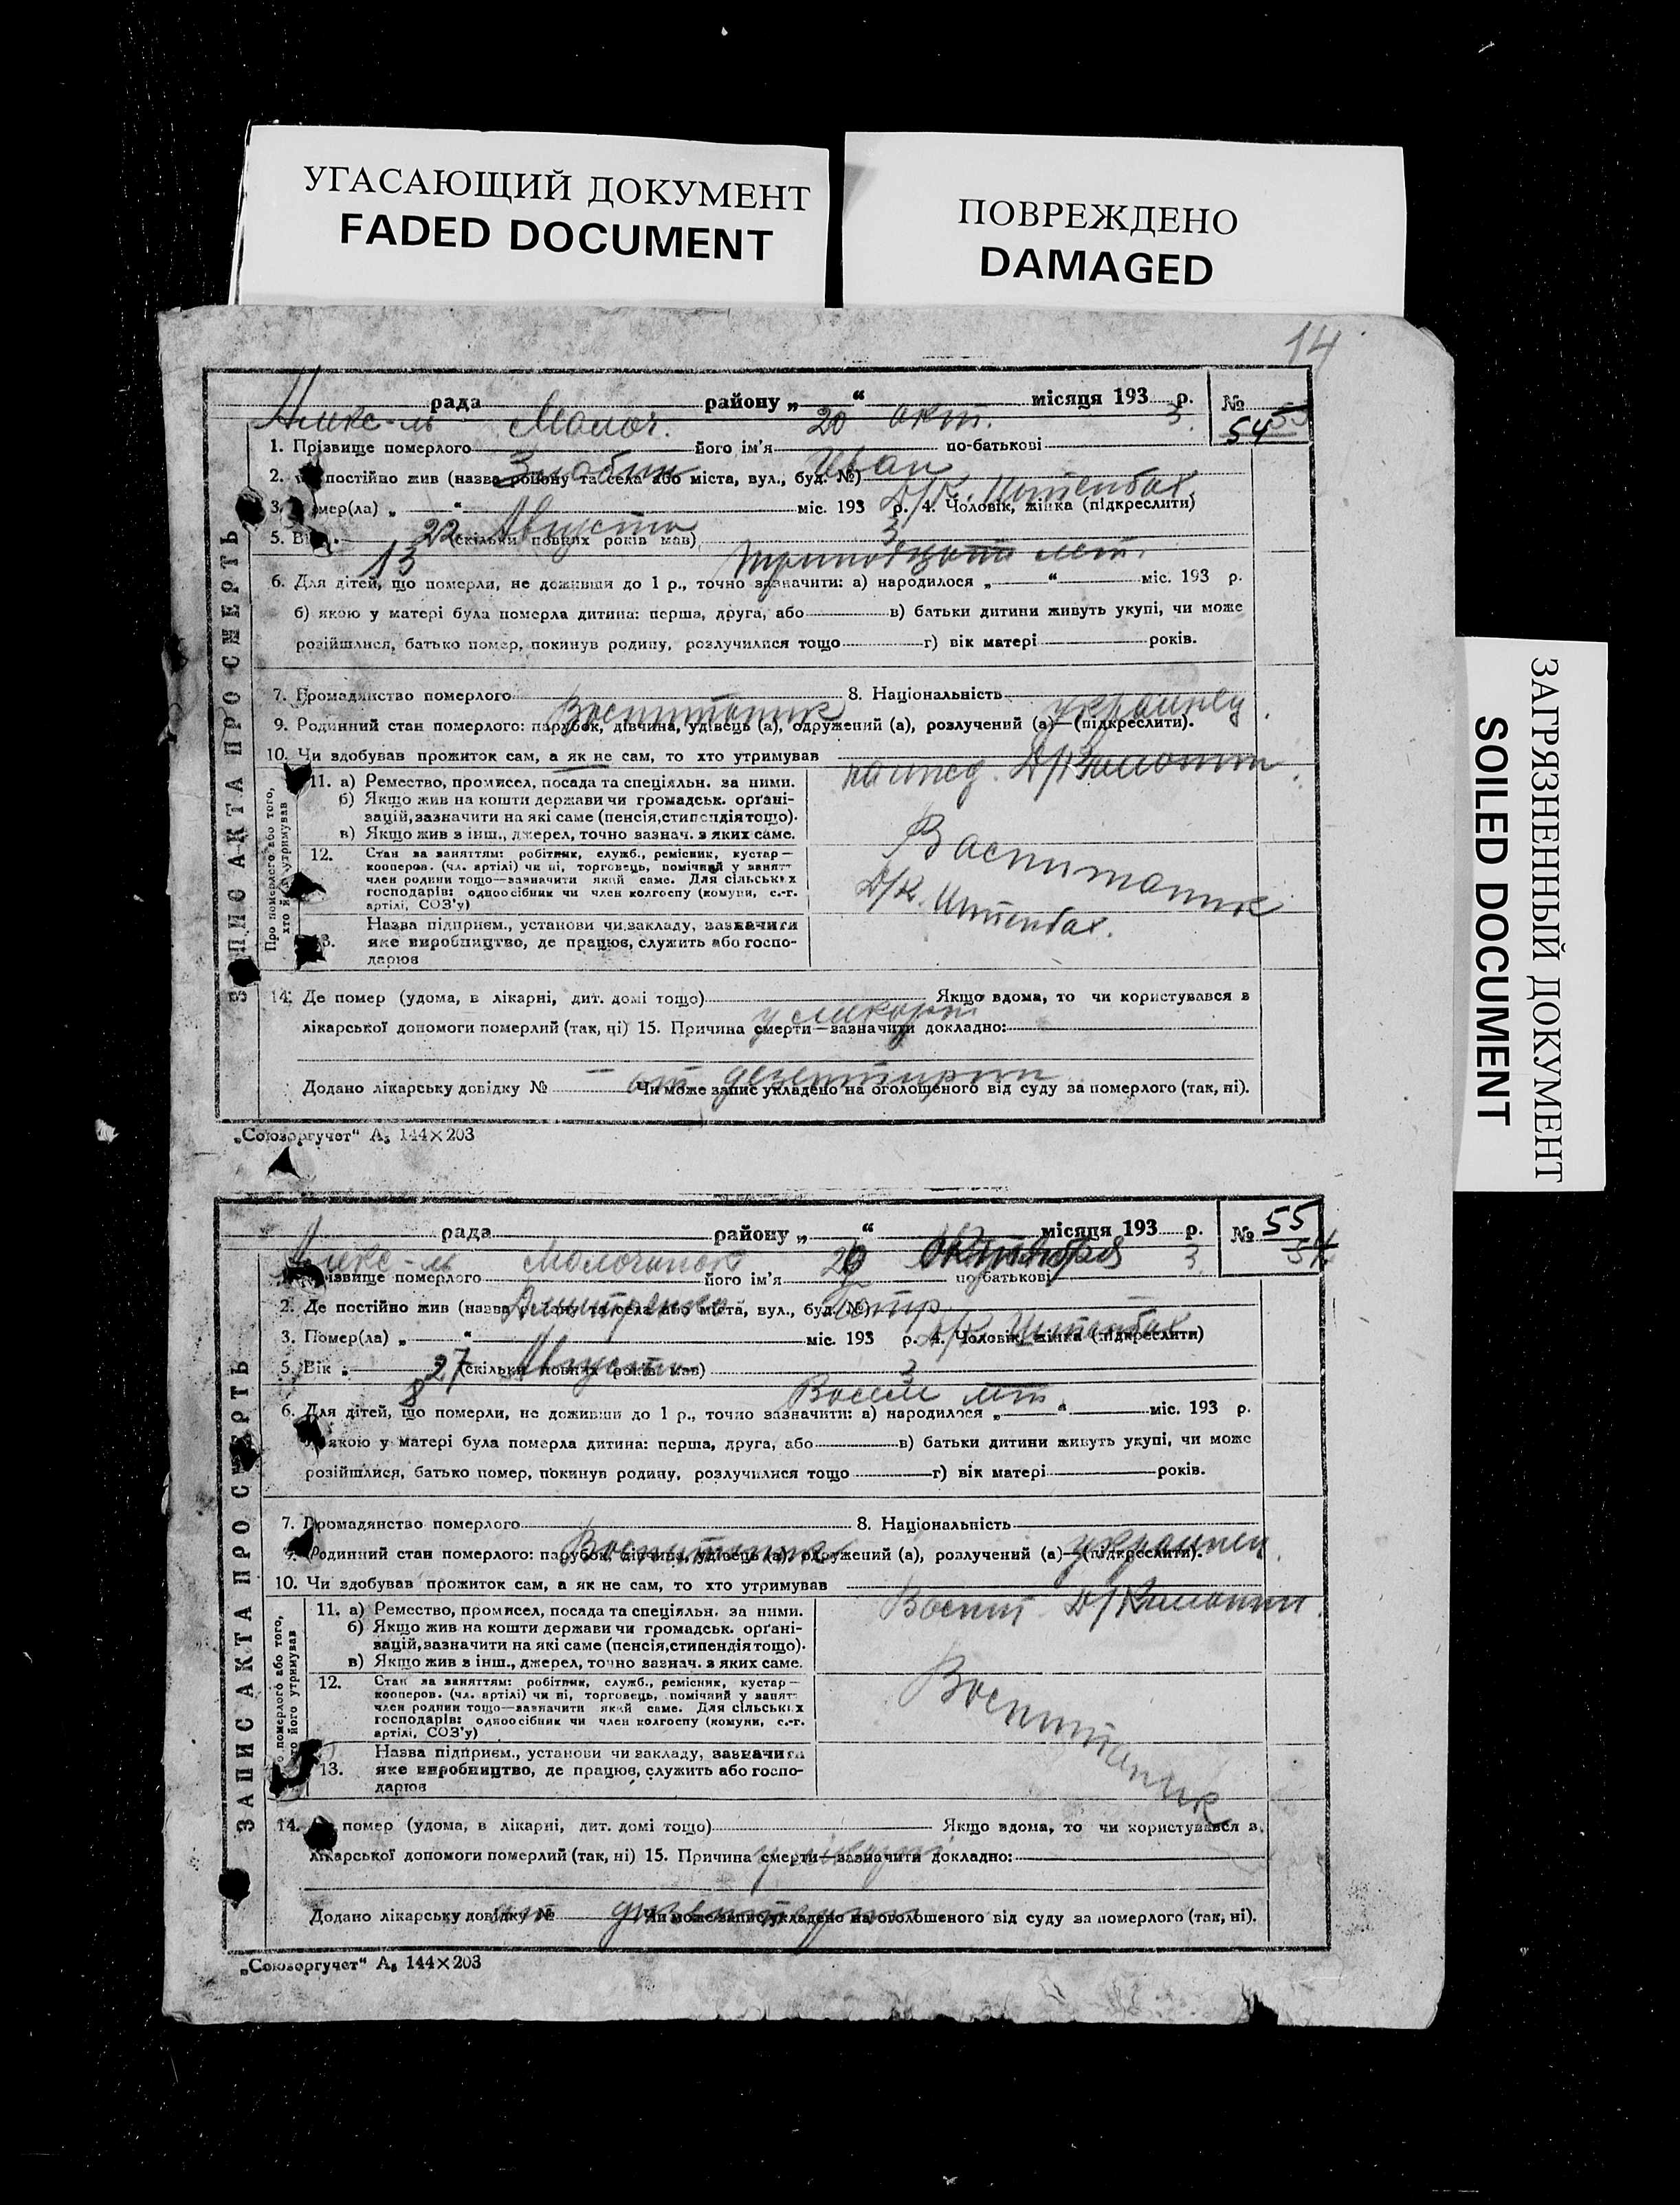 УГАСАЮЩИЙ ДОКУМЕНТ
FADED DOCUMENT
ПОВРЕЖДЕНО
DAMAGED
ЗАГРЯЗНЕННЫЙ ДОКУМЕНТ
SOILED DOCUMENT
14
рада району „ “ місяця 193 р. №
Алекс-ль Молоч. 20 окт. 3. 54
1. Прізвище померлого його ім'я по-батькові
Злобин Иван
2. постійно жив (назва району та села або міста, вул., буд. №)
Д/К. Штенбах
3. мер(ла) „ “ міс. 193 р. 4. Чоловік, жінка (підкреслити)
22 Августа 3
5. Ві (скільки повних років мав)
13 тринадцать лет.
6. Для дітей, що померли, не доживши до 1 р., точно зазначити: а) народилося „ “ міс. 193 р.
б) якою у матері була померла дитина: перша, друга, або в) батьки дитини живуть укупі, чи може
розійшлися, батько помер, покинув родину, розлучилися тощо г) вік матері років.
7. Громадянство померлого 8. Національність
Воспитаник украинец.
9. Родинний стан померлого: парубок, дівчина, удівець (а), одружений (а), розлучений (а)—(підкреслити).
10. Чи здобував прожиток сам, а як не сам, то хто утримував
Д/К
11. а) Ремество, промисел, посада та спеціяльн. за ними.
б) Якщо жив на кошти держави чи громадськ. орґані-
зацій, зазначити на які саме (пенсія, стипендія тощо).
в) Якщо жив з інш., джерел, точно зазнач. з яких саме.
Воспитаник
12. Стан за заняттям: робітник, служб., ремісник, кустар—
кооперов. (чл. артілі) чи ні, торговець, помічний у занят-
член родини тощо—зазначити який саме. Для сільських
господарів: одноосібник чи член колгоспу (комуни, с.-г.
артілі, СОЗ'у)
Д/К. Штенбах.
13. Назва підприєм., установи чи закладу, зазначити
яке виробництво, де працює, служить або госпо-
дарює
Про померлого або того,
хто його утримував
ЗАПИС АКТА ПРО СМЕРТЬ
14. Де помер (удома, в лікарні, дит. домі тощо) Якщо вдома, то чи користувався в
лікарської допомоги померлий (так, ні) 15. Причина смерти—зазначити докладно:
от дезентирии
Додано лікарську довідку № Чи може запис укладено на оголошеного від суду за померлого (так, ні).
„Союзоргучет“ А₅ 144×203
рада району „ “ місяця 193 р. № 55
Алекс-ль Молочанск Октября 3. 54
ізвище померлого його ім'я по-батькові
Дмитренко Петр
2. Де постійно жив (назва району та села або міста, вул., буд. №)
Д/К Штенбах
3. Помер(ла) „ “ міс. 193 р. 4. Чоловік, жінка (підкреслити)
27 Августа 3
5. Вік (скільки повних років мав)
8 Восем лет
6. Для дітей, що померли, не доживши до 1 р., точно зазначити: а) народилося „ “ міс. 193 р.
якою у матері була померла дитина: перша, друга, або в) батьки дитини живуть укупі, чи може
розійшлися, батько помер, покинув родину, розлучилися тощо г) вік матері років.
7. Громадянство померлого 8. Національність
Воспитаник украинец.
9. Родинний стан померлого: парубок, дівчина, удівець (а), одружений (а), розлучений (а)—(підкреслити).
10. Чи здобував прожиток сам, а як не сам, то хто утримував
Воспит Д/К
11. а) Ремество, промисел, посада та спеціяльн. за ними.
б) Якщо жив на кошти держави чи громадськ. орґані-
зацій, зазначити на які саме (пенсія, стипендія тощо).
в) Якщо жив з інш., джерел, точно зазнач. з яких саме.
Воспитаник
12. Стан за заняттям: робітник, служб., ремісник, кустар—
кооперов. (чл. артілі) чи ні, торговець, помічний у занят-
член родини тощо—зазначити який саме. Для сільських
господарів: одноосібник чи член колгоспу (комуни, с.-г.
артілі, СОЗ'у)
13. Назва підприєм., установи чи закладу, зазначити
яке виробництво, де працює, служить або госпо-
дарює
померлого або того,
то його утримував
ЗАПИС АКТА ПРО СМЕРТЬ
14. помер (удома, в лікарні, дит. домі тощо) Якщо вдома, то чи користувався в
лікарської допомоги померлий (так, ні) 15. Причина смерти—зазначити докладно:
от дезентерии
Додано лікарську довідку № Чи може запис укладено на оголошеного від суду за померлого (так, ні).
„Союзоргучет“ А₅ 144×203